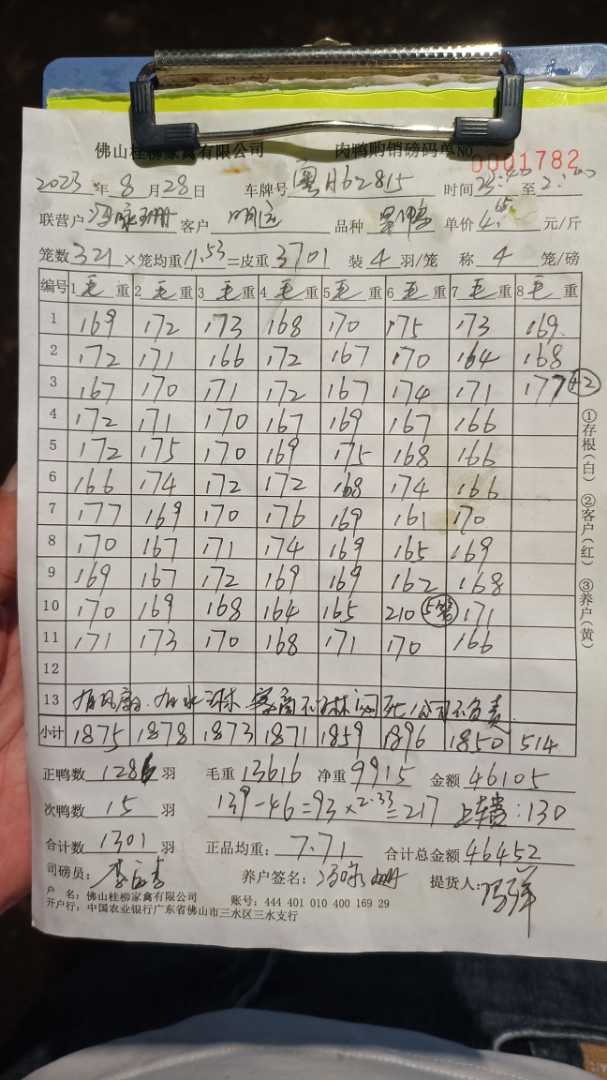 佛山桂柳家禽有限公司 肉鸭购销磅码单NO 0001782
2023年8月28日 车牌号 粤A62815 时间23:40至2:00
联营户 客户 明远 品种 单价4.65元/斤
笼数321×笼均重11.53=皮重3701 装4羽/笼 称4笼/磅
编号 1毛重 2毛重 3毛重 4毛重 5毛重 6毛重 7毛重 8毛重
1 169 172 173 168 170 175 173 169
2 172 171 166 172 167 170 164 168
3 167 170 171 172 167 174 171 177 +2
4 172 171 170 167 169 167 166
5 172 175 170 169 175 168 166
6 166 174 172 172 168 174 166
7 177 169 170 176 169 161 170
8 170 167 171 174 169 165 169
9 169 167 172 169 169 162 168
10 170 169 168 164 165 210 5笼 171
11 171 173 170 168 171 170 166
12
13 客商不淋 死公司不负责
小计 1875 1878 1873 1871 1859 1896 1850 514
正鸭数1286羽 毛重13616 净重9915 金额46105
次鸭数15羽 139-46=93×2.33=217 上车费:130
合计数1301羽 正品均重:7.71 合计总金额46452
司磅员: 养户签名: 提货人:
户 名:佛山桂柳家禽有限公司 账号:444 401 010 400 169 29
开户行:中国农业银行广东省佛山市三水区三水支行
①存根(白) ②客户(红) ③养户(黄)